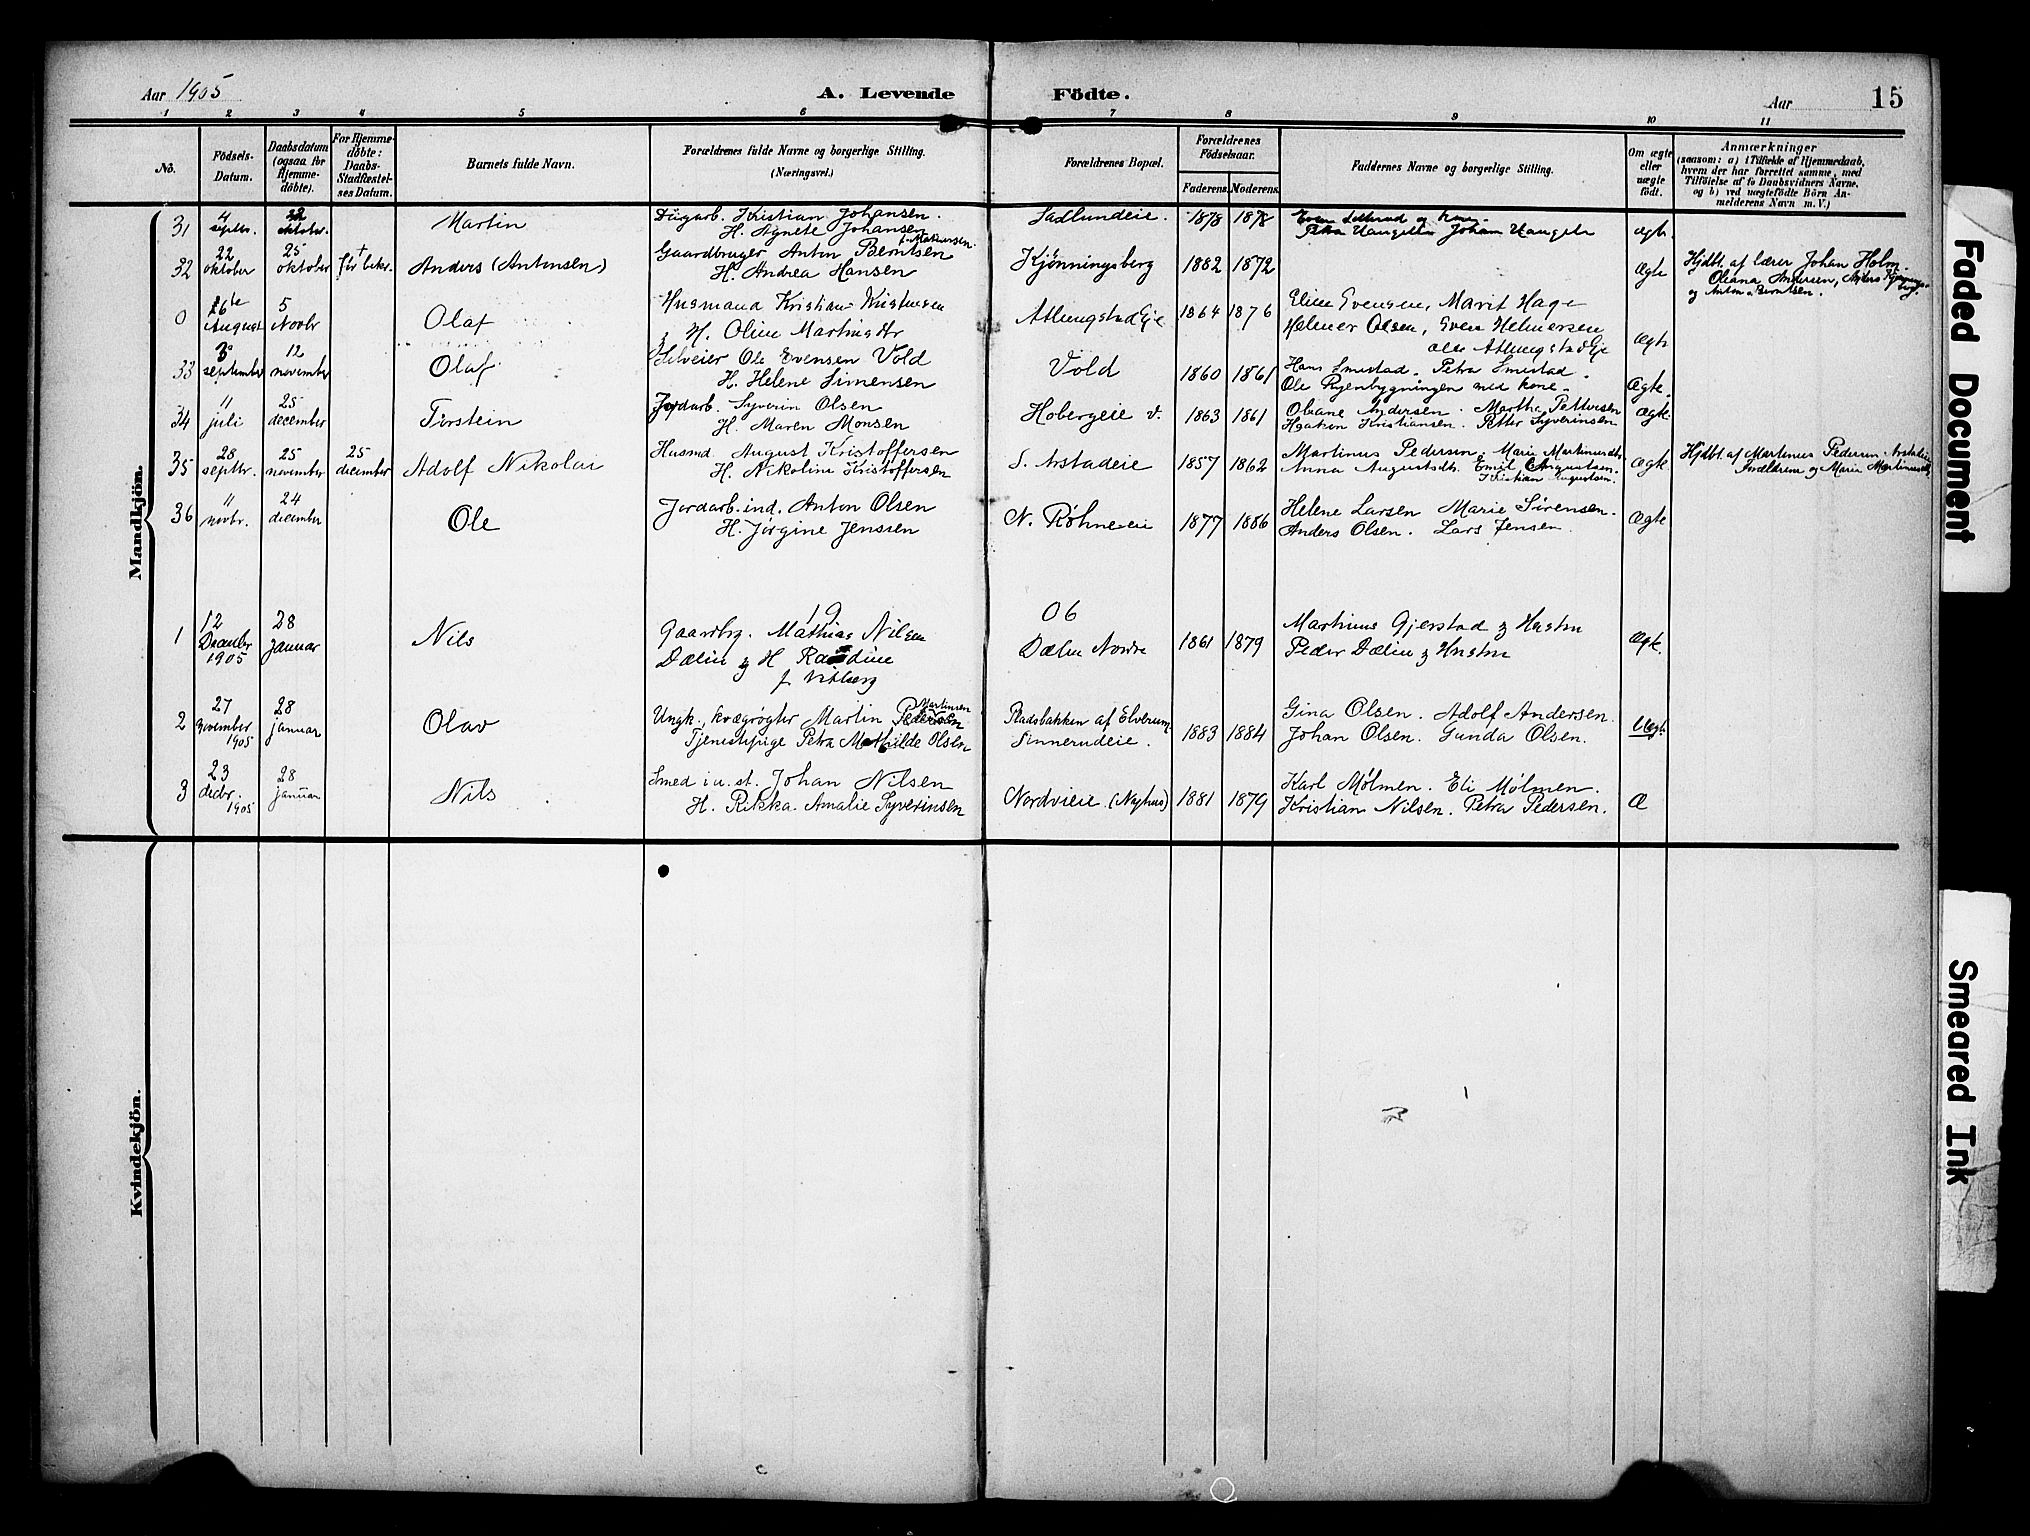 Aar 1905
A. Levende Födte.
Aar
15
1 2 3 4 5 6 7 8 9 10 11
No.
Födsels-
Datum.
Daabsdatum
(ogsaa for
Hjemme-
döbte).
For Hjemme-
döbte:
Daabs-
Stadfæstel-
ses Datum.
Barnets fulde Navn.
Forældrenes fulde Navne og borgerlige Stilling.
(Næringsvei.)
Forældrenes Bopæl.
Forældrenes
Födselsaar.
Faderens. Moderens.
Faddernes Navne og borgerlige Stilling.
Om ægte
eller
uægte
födt.
Anmærkninger
(saasom: a) i Tilfælde af Hjemmedaab,
hvem der har forrettet samme, med
Tilföielse af to Daabsvidners Navne,
og b) ved uegtefödte Börn An-
melderens Navn m. V.)
Mandkjön.
31
4
septbr.
oktober.
Martin
Dagarb. Kristian Johansen.
H. Agnete Johansen
Sadlundeie.
1878 1878
Even og kone.
Petra Haugete Johan Haugete
ægte.
32
22
oktober
25
oktober
†
før bekr.
Anders (Antonsen)
Gaardbruger Anton Berntsen
H. Andrea Hansen f. Mathisen
Kjønningsberg
1882 1872
Ægte
Hjdbt. af lærer Johan Holm.
Oleana Andersen, Anders Kjønnings-
berg.
og Anton Berntsen.
0
26de
August
5
Novbr
Olaf
Husmand Kristian Kristiansen
& H. Oline Martinsdtr
Atlungstad Eje
1864 1876
Eline Evensen, Marit Hage
Helmer Olsen, Even Helmersen
alle Atlungstad Eje
Ægte
33
3
september
12
november
Olaf
Selveier Ole Evensen Vold
H. Helene Simensen
Vold
1860 1861
Hans Smestad. Petra Smestad.
Ole Ryenbygningen med kone.
Ægte.
34
11
juli
25
december
Torstein
Jordarb. Syverin Olsen
H. Maren Monsen
Hobergeie v.
1863 1861
Oleane Andersen. Martha Pettersen
Haaken Kristiansen. Petter Syverinsen
Ægte
35
28
septbr.
25
november
25
december
Adolf Nikolai
Husmd. August Kristoffersen
H. Nikoline Kristoffersen
S. Arstadeie
1857 1862
Martinus Pedersen, Marie Martinusdtr.
Anna Augustsdtr. Emil Augustsen.
Kristian Augustsen.
Ægte
Hjdbt. af Martinus Pedersen Arstadeie
Forældrene og Marie Martinusdtr.
36
11
novbr.
24
december
Ole
Jordarb. ind. Anton Olsen
H. Jørgine Jenssen
N. Røhneeie
1877 1886
Helene Larsen Marie Sørensen.
Anders Olsen. Lars Jensen.
Ægte
19 06
1
12
December
1905
28
Januar
Nils
Gaardbrg. Mathias Nilsen
Dælin & H Randine
f. Vitberg
Dælin Nordre
1861 1879
Martinus Gjerstad & Hustru
Peder Dælin & Hustru
Ægte.
2
27
november
1905
28
januar
Olav
Ungk., kvægrøgter Martin Pedersen Martinsen
Tjenestepige Petra Mathilde Olsen
Pladsbakken af Elverum.
Sinnerudeie.
1883 1884
Gina Olsen. Adolf Andersen.
Johan Olsen. Gunda Olsen.
Uægte
3
23
decbr.
1905
28
januar
Nils
Smed i u. st. Johan Nilsen
H. Rikka Amalie Syverinsen
Nordvieie (Nyhus)
1881 1879
Karl Mølmen. Eli Mølmen.
Kristian Nilsen. Petra Pedersen.
Æ
Kvindekjön.
Faded Document
Smeared Ink